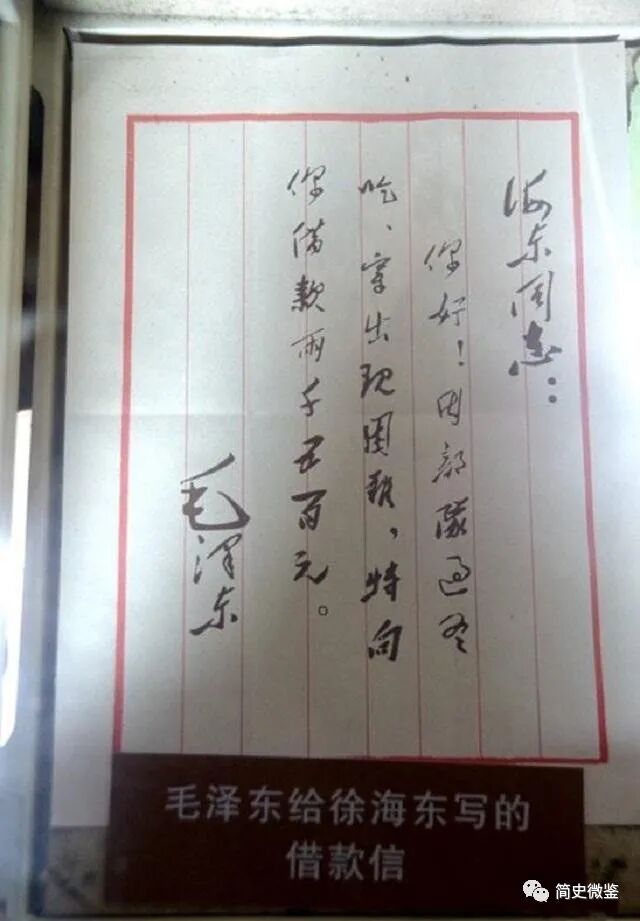 海东同志：
你好！因部隊过冬
吃、穿出现困難，特向
你借款两千五百元。
毛泽东
毛泽东给徐海东写的
借款信
简史微鉴